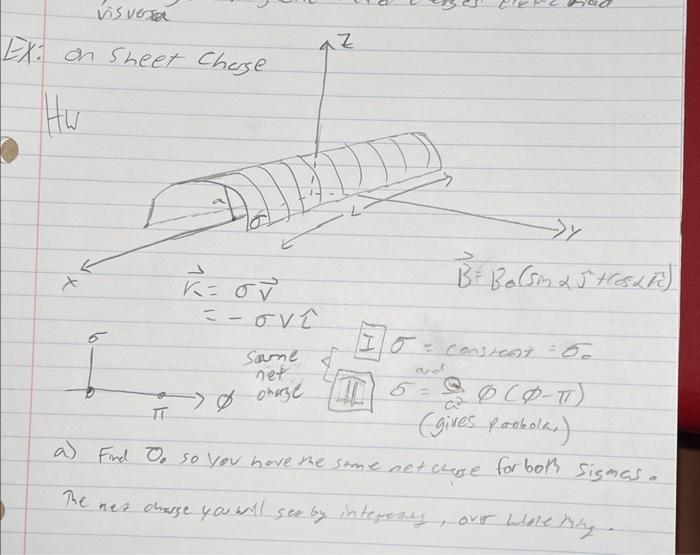 visversa
EX: on Sheet Charge
Hw
Z
a
σ
L
X
Y
B⃗ = B₀(sin α ĵ + cos α k̂)
K⃗ = σ v⃗
= - σ v î
σ
π
ϕ
same
net
charge
I σ = constant = σ₀
and
II σ = Q/a² ϕ (ϕ - π)
(gives parabola,)
a) Find σ₀ so you have the same net charge for both sigmas.
The net charge you will see by integrating, over whole thing.